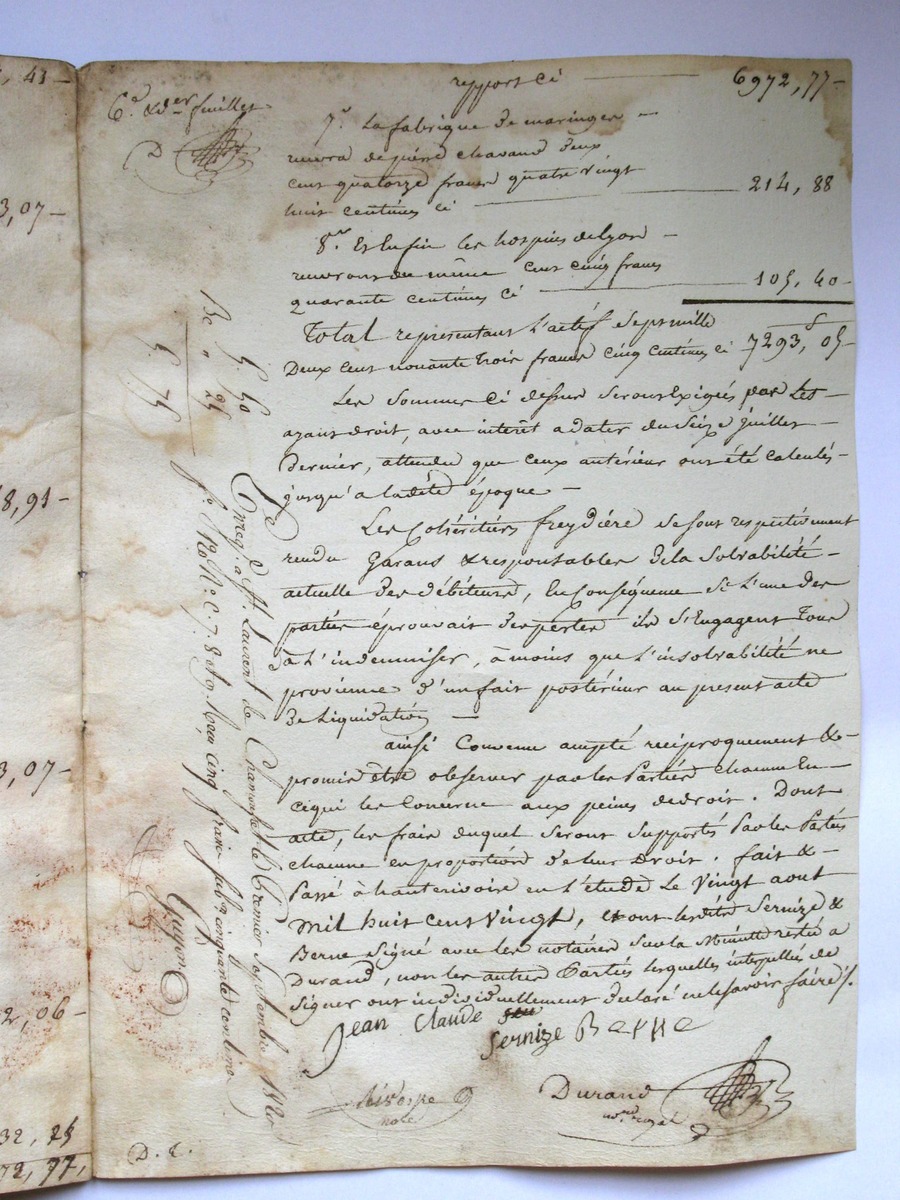 , 43 -
3,07 -
8,91 -
3,07 -
2,06 -
32, 25
72, 77,
6.e & der feuillet
D
report ci 6972,77 -
7.o La fabrique de maringes -
recevra de pierre chavand deux
cent quatorze francs quatre vingt
huit centimes ci 214, 88
8.o Et Enfin les hospices de Lyon -
recevront de même cent cinq francs
quarante centimes ci 105, 40 -
Total representant L'actif Sept mille
Deux cent nonante trois francs cinq Centimes ci 7293,05 -
Les Sommes Ci dessus Seront Exigées par Les -
ayans droit, avec intérêt a dater du Seize juillet -
Dernier, attendu que ceux antérieur ont été calculés -
jusqu'a ladite époque -
Les Cohéritiers freydière se sont respectivement
rendu Garans & responsables de la Solvabilité -
actuelle des débiteurs, En Conséquence Si L'une des
parties éprouvait des pertes ils S'Engagent Tous
à L'indemniser, à moins que L'insolvabilité ne
provienne d'un fait postérieur au present acte
de Liquidation -
ainsi Convenu accepté réciproquement & -
promis être observer par les Parties chacune En -
ce qui les Concerne aux peines de droit. Dont
acte, les frais duquel Seront Supportés Par les Parties
chacune en proportion de leur Droit. fait & -
Passé à hauterivoire en L'étude Le Vingt aout
Mil huit cent Vingt, et ont lesdits Sernize &
Berne Signé avec les notaires Sur la Minutte restée a
Durand, non les autres Parties lesquelles interpellés de
Signer ont individuellement declaré ne le savoir faire /.
Jean Claude
Sernize Berne
Durand
no.re royal
D. C.
5, 40
" 25
5 75
Enreg.é à S.t Laurent de Chamousset le Premier Septembre 1820
f.o 120 R.o C. 7. 8 et 9. Reçu Cinq francs soixante quinze centimes
Guyon